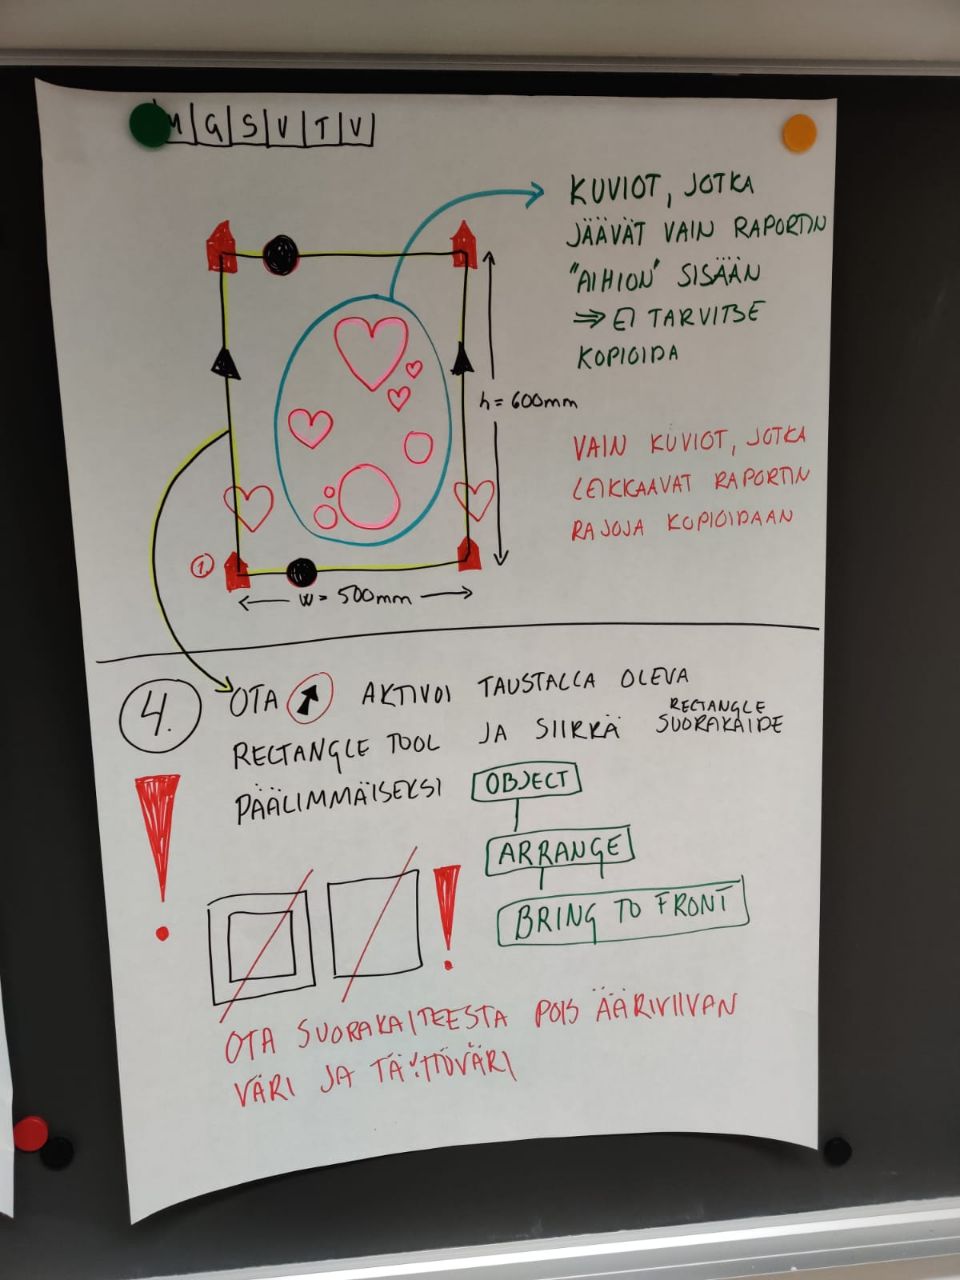 M G S V T V
KUVIOT, JOTKA
JÄÄVÄT VAIN RAPORTIN
"AIHION" SISÄÄN
⇒ EI TARVITSE
KOPIOIDA
h = 600mm
VAIN KUVIOT, JOTKA
LEIKKAAVAT RAPORTIN
RAJOJA KOPIOIDAAN
1
W = 500mm
4.
OTA AKTIVOI TAUSTALLA OLEVA
RECTANGLE
RECTANGLE TOOL JA SIIRRÄ SUORAKAIDE
PÄÄLIMMÄISEKSI
OBJECT
ARRANGE
BRING TO FRONT
!
!
OTA SUORAKAITEESTA POIS ÄÄRIVIIVAN
VÄRI JA TÄYTTÖVÄRI